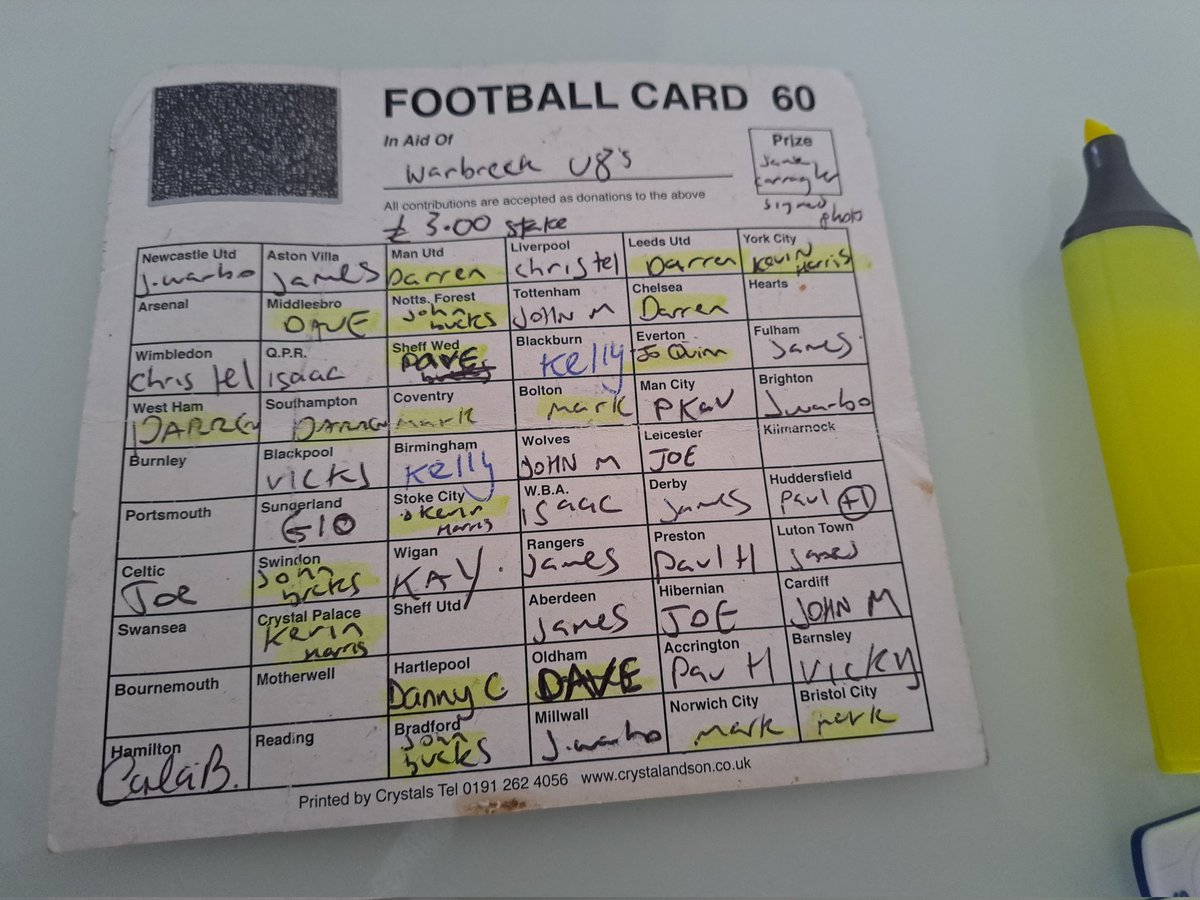 FOOTBALL CARD 60
In Aid Of
Warbreck U8's
Prize
Jamey
Carragher
signed
photo
All contributions are accepted as donations to the above
£3.00 stake
Newcastle Utd
J.warbo
Aston Villa
JAMES
Man Utd
Darren
Liverpool
Christel
Leeds Utd
Darren
York City
Kevin
Harris
Arsenal
Middlesbro
DAVE
Notts. Forest
John
bucks
Tottenham
JOHN M
Chelsea
Darren
Hearts
Wimbledon
Christel
Q.P.R.
isaac
Sheff Wed
DAVE
Blackburn
Kelly
Everton
Jo Quinn
Fulham
James
West Ham
DARREN
Southampton
DARREN
Coventry
Mark
Bolton
Mark
Man City
PKAV
Brighton
J.warbo
Burnley
Blackpool
VICKS
Birmingham
Kelly
Wolves
JOHN M
Leicester
JOE
Kilmarnock
Portsmouth
Sunderland
G10
Stoke City
Kevin
Harris
W.B.A.
isaac
Derby
James
Huddersfield
Paul +1
Celtic
Joe
Swindon
John
bucks
Wigan
KAY.
Rangers
James
Preston
Paul H
Luton Town
James
Swansea
Crystal Palace
Kevin
Harris
Sheff Utd
Aberdeen
James
Hibernian
JOE
Cardiff
JOHN M
Bournemouth
Motherwell
Hartlepool
Danny C
Oldham
DAVE
Accrington
Pau H
Barnsley
Vicky
Hamilton
CarlaB.
Reading
Bradford
John
bucks
Millwall
J.warbo
Norwich City
mark
Bristol City
mark
Printed by Crystals Tel 0191 262 4056 www.crystalandson.co.uk